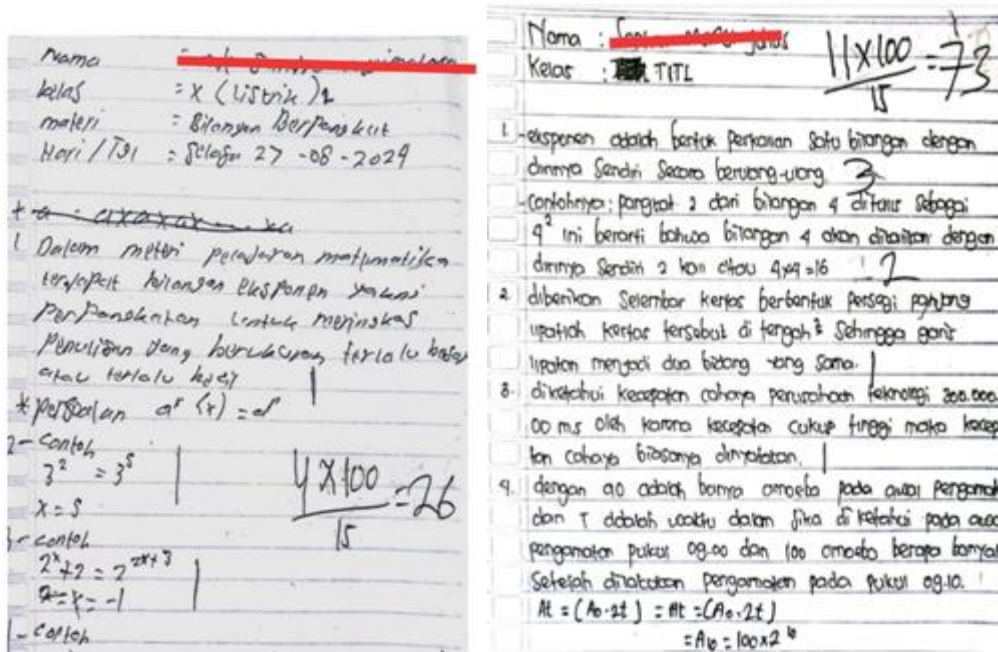 Nama :
kelas : X (Listrik) 2
materi : Bilangan Berpangkat
Hari / Tgl : Selasa 27 - 08 - 2024
1 Dalam materi pelajaran matimatika
terdapat bilangan eksponen yakni
perpangkatan untuk meringkas
penulisan yang berukuran terlalu besar
atau terlalu kecil
1
2 - contoh
3² = 3⁵
1
x = 5
- contoh
2ˣ + 2 = 2²ˣ⁺³
x = -1
1
- contoh
4 X 100
15
= 26
Nama :
Kelas : TITL
11 X 100
15
= 73
1. - eksponen adalah bentuk perkalian satu bilangan dengan
dirinya Sendiri Secara berulang-ulang 3
- contohnya : pangkat 2 dari bilangan 4 ditulis Sebagai
4² ini berarti bahwa bilangan 4 akan dikalikan dengan
dirinya Sendiri 2 kali atau 4x4=16 2
2. diberikan Selembar kertas berbentuk persegi panjang
lipatlah kertas tersebut di tengah² Sehingga garis
lipatan menjadi dua bidang yang Sama. 1
3. diketahui kecepatan cahaya perusahaan teknologi 300.000.
00 ms oleh karena kecepatan cukup tinggi maka kecepa
tan cahaya biasanya dinyatakan. 1
4. dengan a0 adalah banya amoeba pada awal pengamat
dan T adalah waktu dalam jika di ketahui pada awa
pengamatan pukul 09.00 dan 100 amoeba berapa banya
Setelah dilakukan pengamatan pada pukul 09.10.
At = (A₀.2t) = At = (A₀.2t)
= A₁₀ = 100x2¹⁰